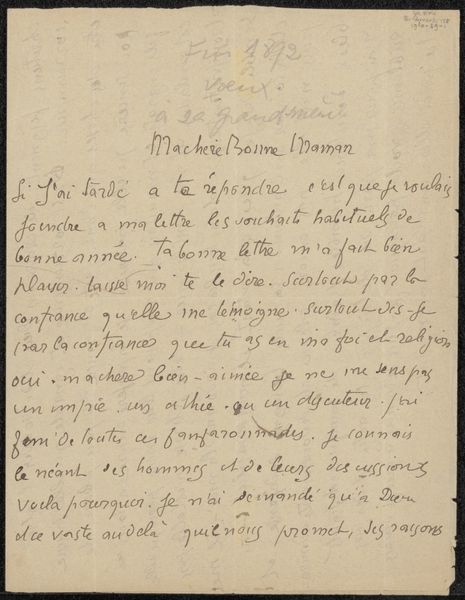 Fin 1892
voeux
à sa grand mère
Machère Bonne Maman
Si J'ai tardé a te répondre c'est que je voulais
joindre a ma lettre les souhaits habituels de
bonne année. ta bonne lettre m'a fait bien
plaisir. laisse moi te le dire. surtout par la
confiance qu'elle me témoigne. surtout dis-je
par la confiance que tu as en ma foi et religion
oui. ma chere bien-aimée je ne me sens pas
un impie. un athée. ou un discuteur. j'ai
fini de toutes ces fanfaronnades. je connais
le néant des hommes et de leurs discussions
voila pourquoi. je n'ai demandé qu'a Dieu
et ce vaste au delà qu'il nous promet, des raisons